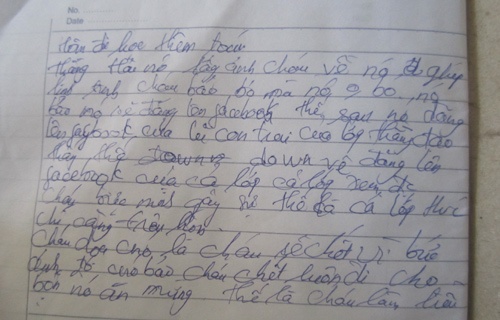 No.
Date
Hôm đi học thêm toán
thằng Hải nó lấy ảnh cháu về nó ghép
linh tinh cháu bảo bỏ mà nó o bỏ nó
bảo nó sẽ đăng lên facebook thế sau nó đăng
lên facebook của con trai của
down về đăng lên
facebook của cả lớp cả lớp xem đc
cháu bức mới gây sự thế là cả lớp
chỉ càng trêu hơn.
cháu dọa cho là cháu sẽ chết vì bức
ảnh đó cno bảo cháu chết luôn đi cho
bọn nó ăn mừng thế là cháu làm liều